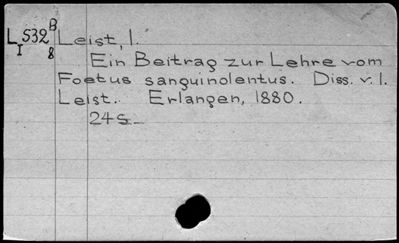 B
L 532 Leist, I.
I 8
Ein Beitrag zur Lehre vom
Foetus sanguinolentus. Diss. v. I.
Leist. Erlangen, 1880.
24 S.